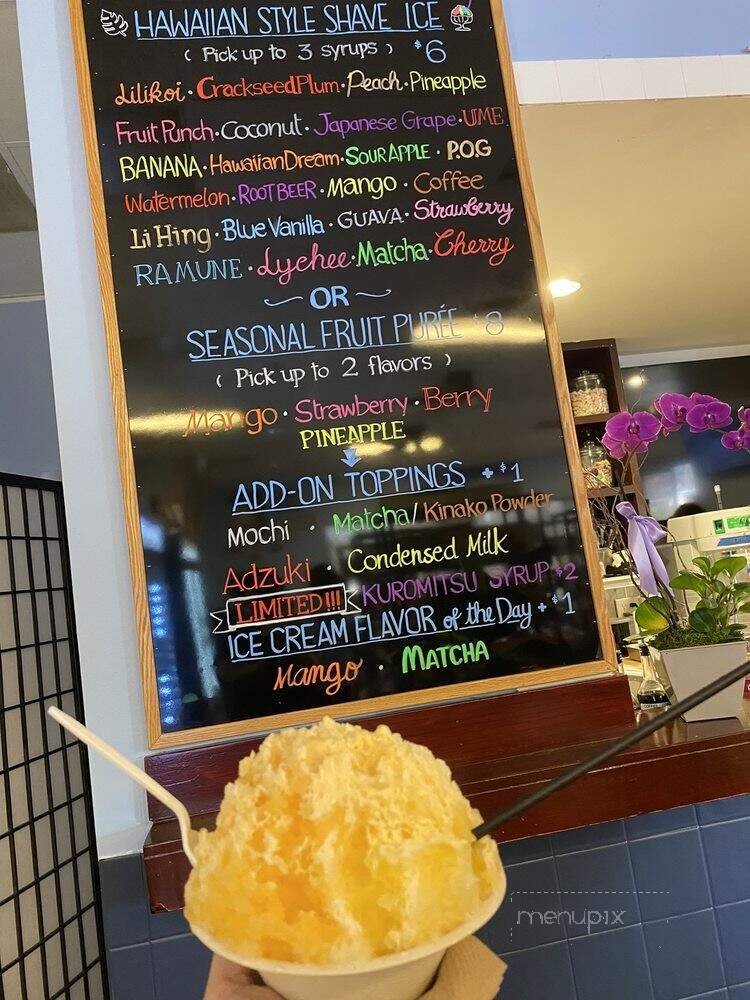 HAWAIIAN STYLE SHAVE ICE
( Pick up to 3 syrups ) $6
Lilikoi · Crackseed Plum · Peach · Pineapple
Fruit Punch · Coconut · Japanese Grape · UME
BANANA · Hawaiian Dream · SOUR APPLE · P.O.G
Watermelon · ROOT BEER · Mango · Coffee
Li Hing · Blue Vanilla · GUAVA · Strawberry
RAMUNE · Lychee · Matcha · Cherry
OR
SEASONAL FRUIT PURÉE $8
( Pick up to 2 flavors )
Mango · Strawberry · Berry
PINEAPPLE
ADD-ON TOPPINGS + $1
Mochi · Matcha/Kinako Powder
Adzuki · Condensed Milk
LIMITED!!! KUROMITSU SYRUP $2
ICE CREAM FLAVOR of the Day + $1
Mango · MATCHA
menupix